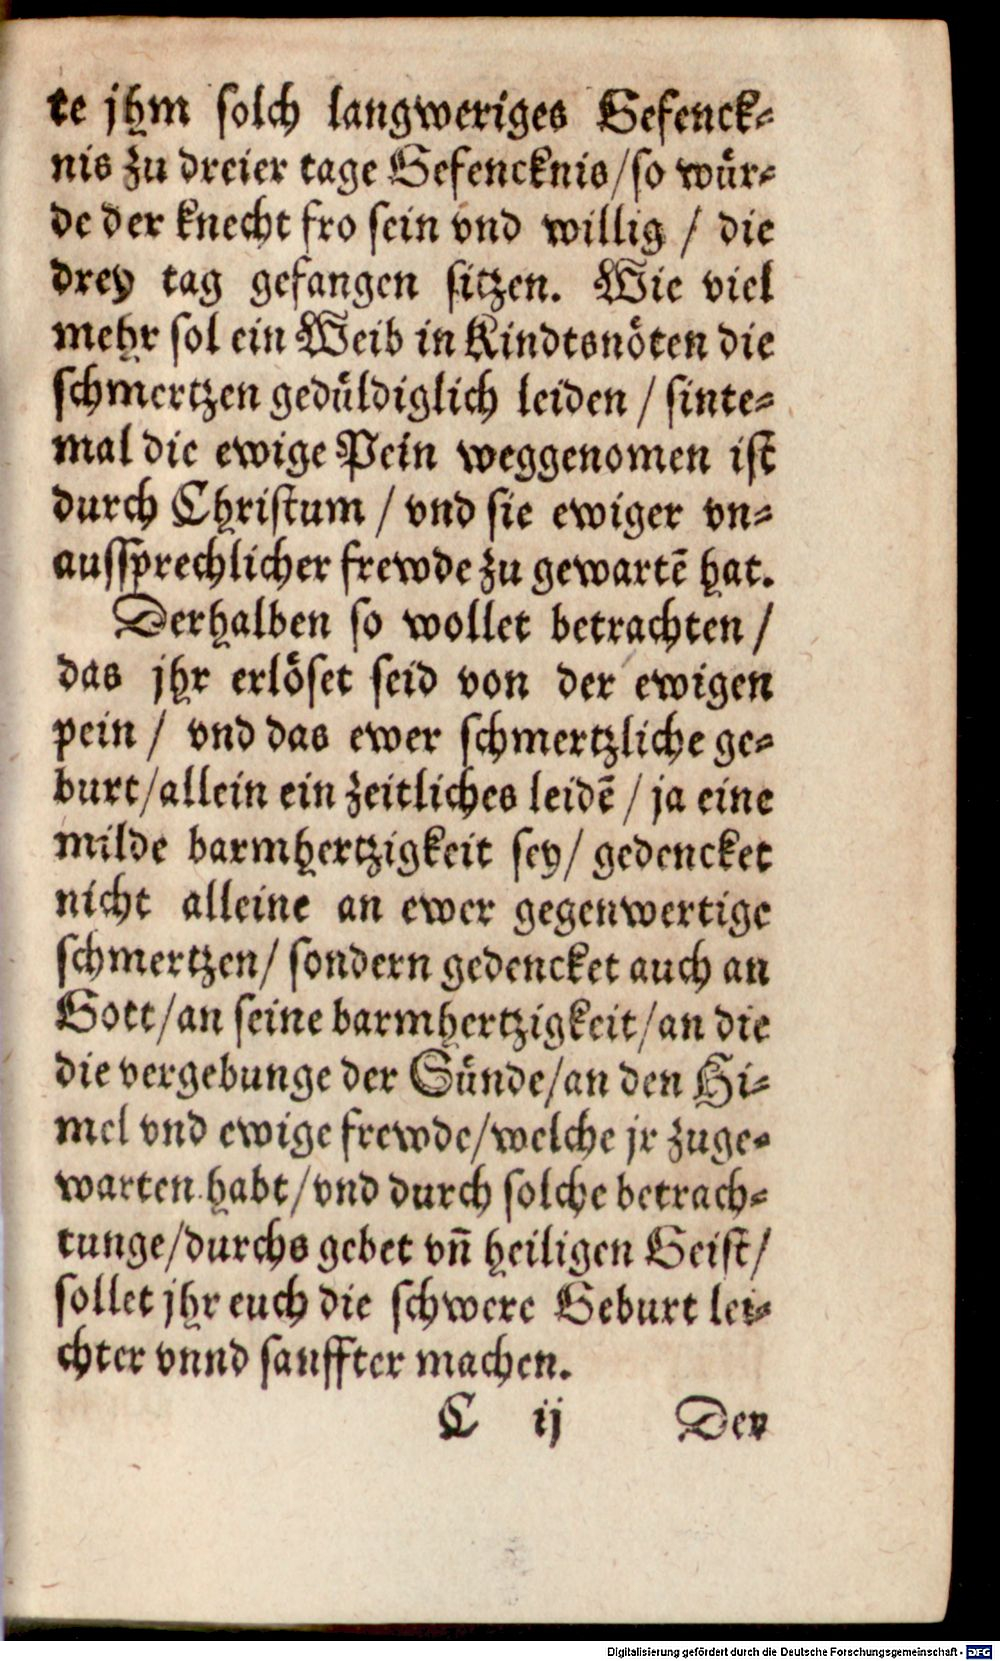 te jhm solch langweriges Gefenck⸗
nis zu dreier tage Gefencknis/so wuͤr⸗
de der knecht fro sein vnd willig / die
drey tag gefangen sitzen. Wie viel
mehr sol ein Weib in Kindtsnoͤten die
schmertzen geduͤldiglich leiden / sinte⸗
mal die ewige Pein weggenomen ist
durch Christum / vnd sie ewiger vn⸗
aussprechlicher frewde zu gewartē hat.
Derhalben so wollet betrachten /
das jhr erloͤset seid von der ewigen
pein / vnd das ewer schmertzliche ge⸗
burt/allein ein zeitliches leidē / ja eine
milde barmhertzigkeit sey/ gedencket
nicht alleine an ewer gegenwertige
schmertzen/ sondern gedencket auch an
Gott/an seine barmhertzigkeit/an die
die vergebunge der Suͤnde/an den Hi⸗
mel vnd ewige frewde/welche jr zuge⸗
warten habt/vnd durch solche betrach⸗
tunge/durchs gebet vn̄ heiligen Geist/
sollet jhr euch die schwere Geburt lei⸗
chter vnnd sanffter machen.
C ij Der
Digitalisierung gefördert durch die Deutsche Forschungsgemeinschaft - DFG